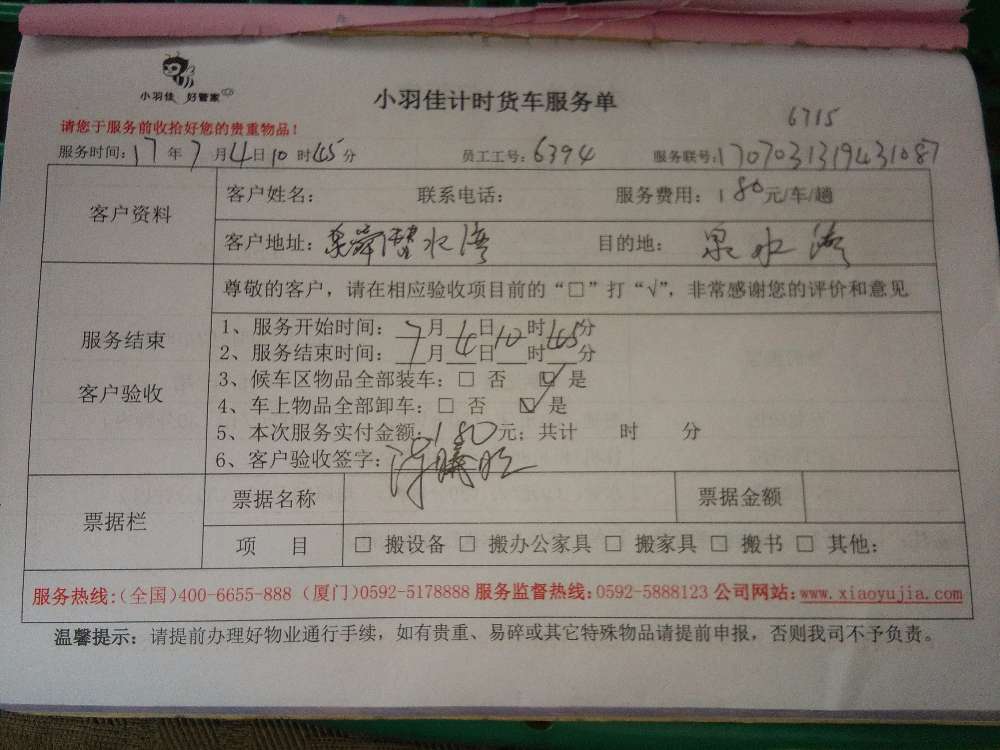 小羽佳 好管家
小羽佳计时货车服务单
6715
请您于服务前收拾好您的贵重物品！
服务时间：17年7月4日10时45分 员工工号：6394 服务联号：1707031319431087
客户资料
客户姓名： 联系电话： 服务费用：180元/车/趟
客户地址： 水湾 目的地：泉水湾
服务结束
客户验收
尊敬的客户，请在相应验收项目前的“□”打“√”，非常感谢您的评价和意见
1、服务开始时间：7月4日10时45分
2、服务结束时间：7月4日 时 分
3、候车区物品全部装车：□ 否 ☑ 是
4、车上物品全部卸车：□ 否 ☑ 是
5、本次服务实付金额：180元；共计 时 分
6、客户验收签字：
票据栏
票据名称 票据金额
项 目 □ 搬设备 □ 搬办公家具 □ 搬家具 □ 搬书 □ 其他：
服务热线：(全国)400-6655-888 (厦门)0592-5178888 服务监督热线：0592-5888123 公司网站：www.xiaoyujia.com
温馨提示：请提前办理好物业通行手续，如有贵重、易碎或其它特殊物品请提前申报，否则我司不予负责。